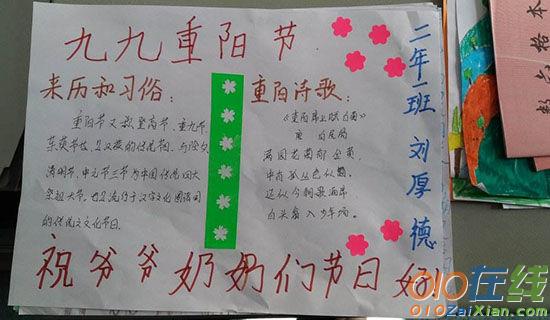 九九重阳节
来历和习俗：
重阳节又称登高节、重九节、
茱萸节 是汉族的传统节日 与除夕
清明节、中元节三节为中国传统四大
祭祖大节，也是流行于汉字文化圈诸国
的传统文化节日。
重阳诗歌：
《重阳席上赋白菊》
唐 白居易
满园花菊郁金黄，
中有孤丛色似霜。
还似今朝歌酒席
白头翁入少年场。
二年一班 刘厚德
祝爷爷奶奶们节日好
数学格本
010在线
010ZaiXian.com